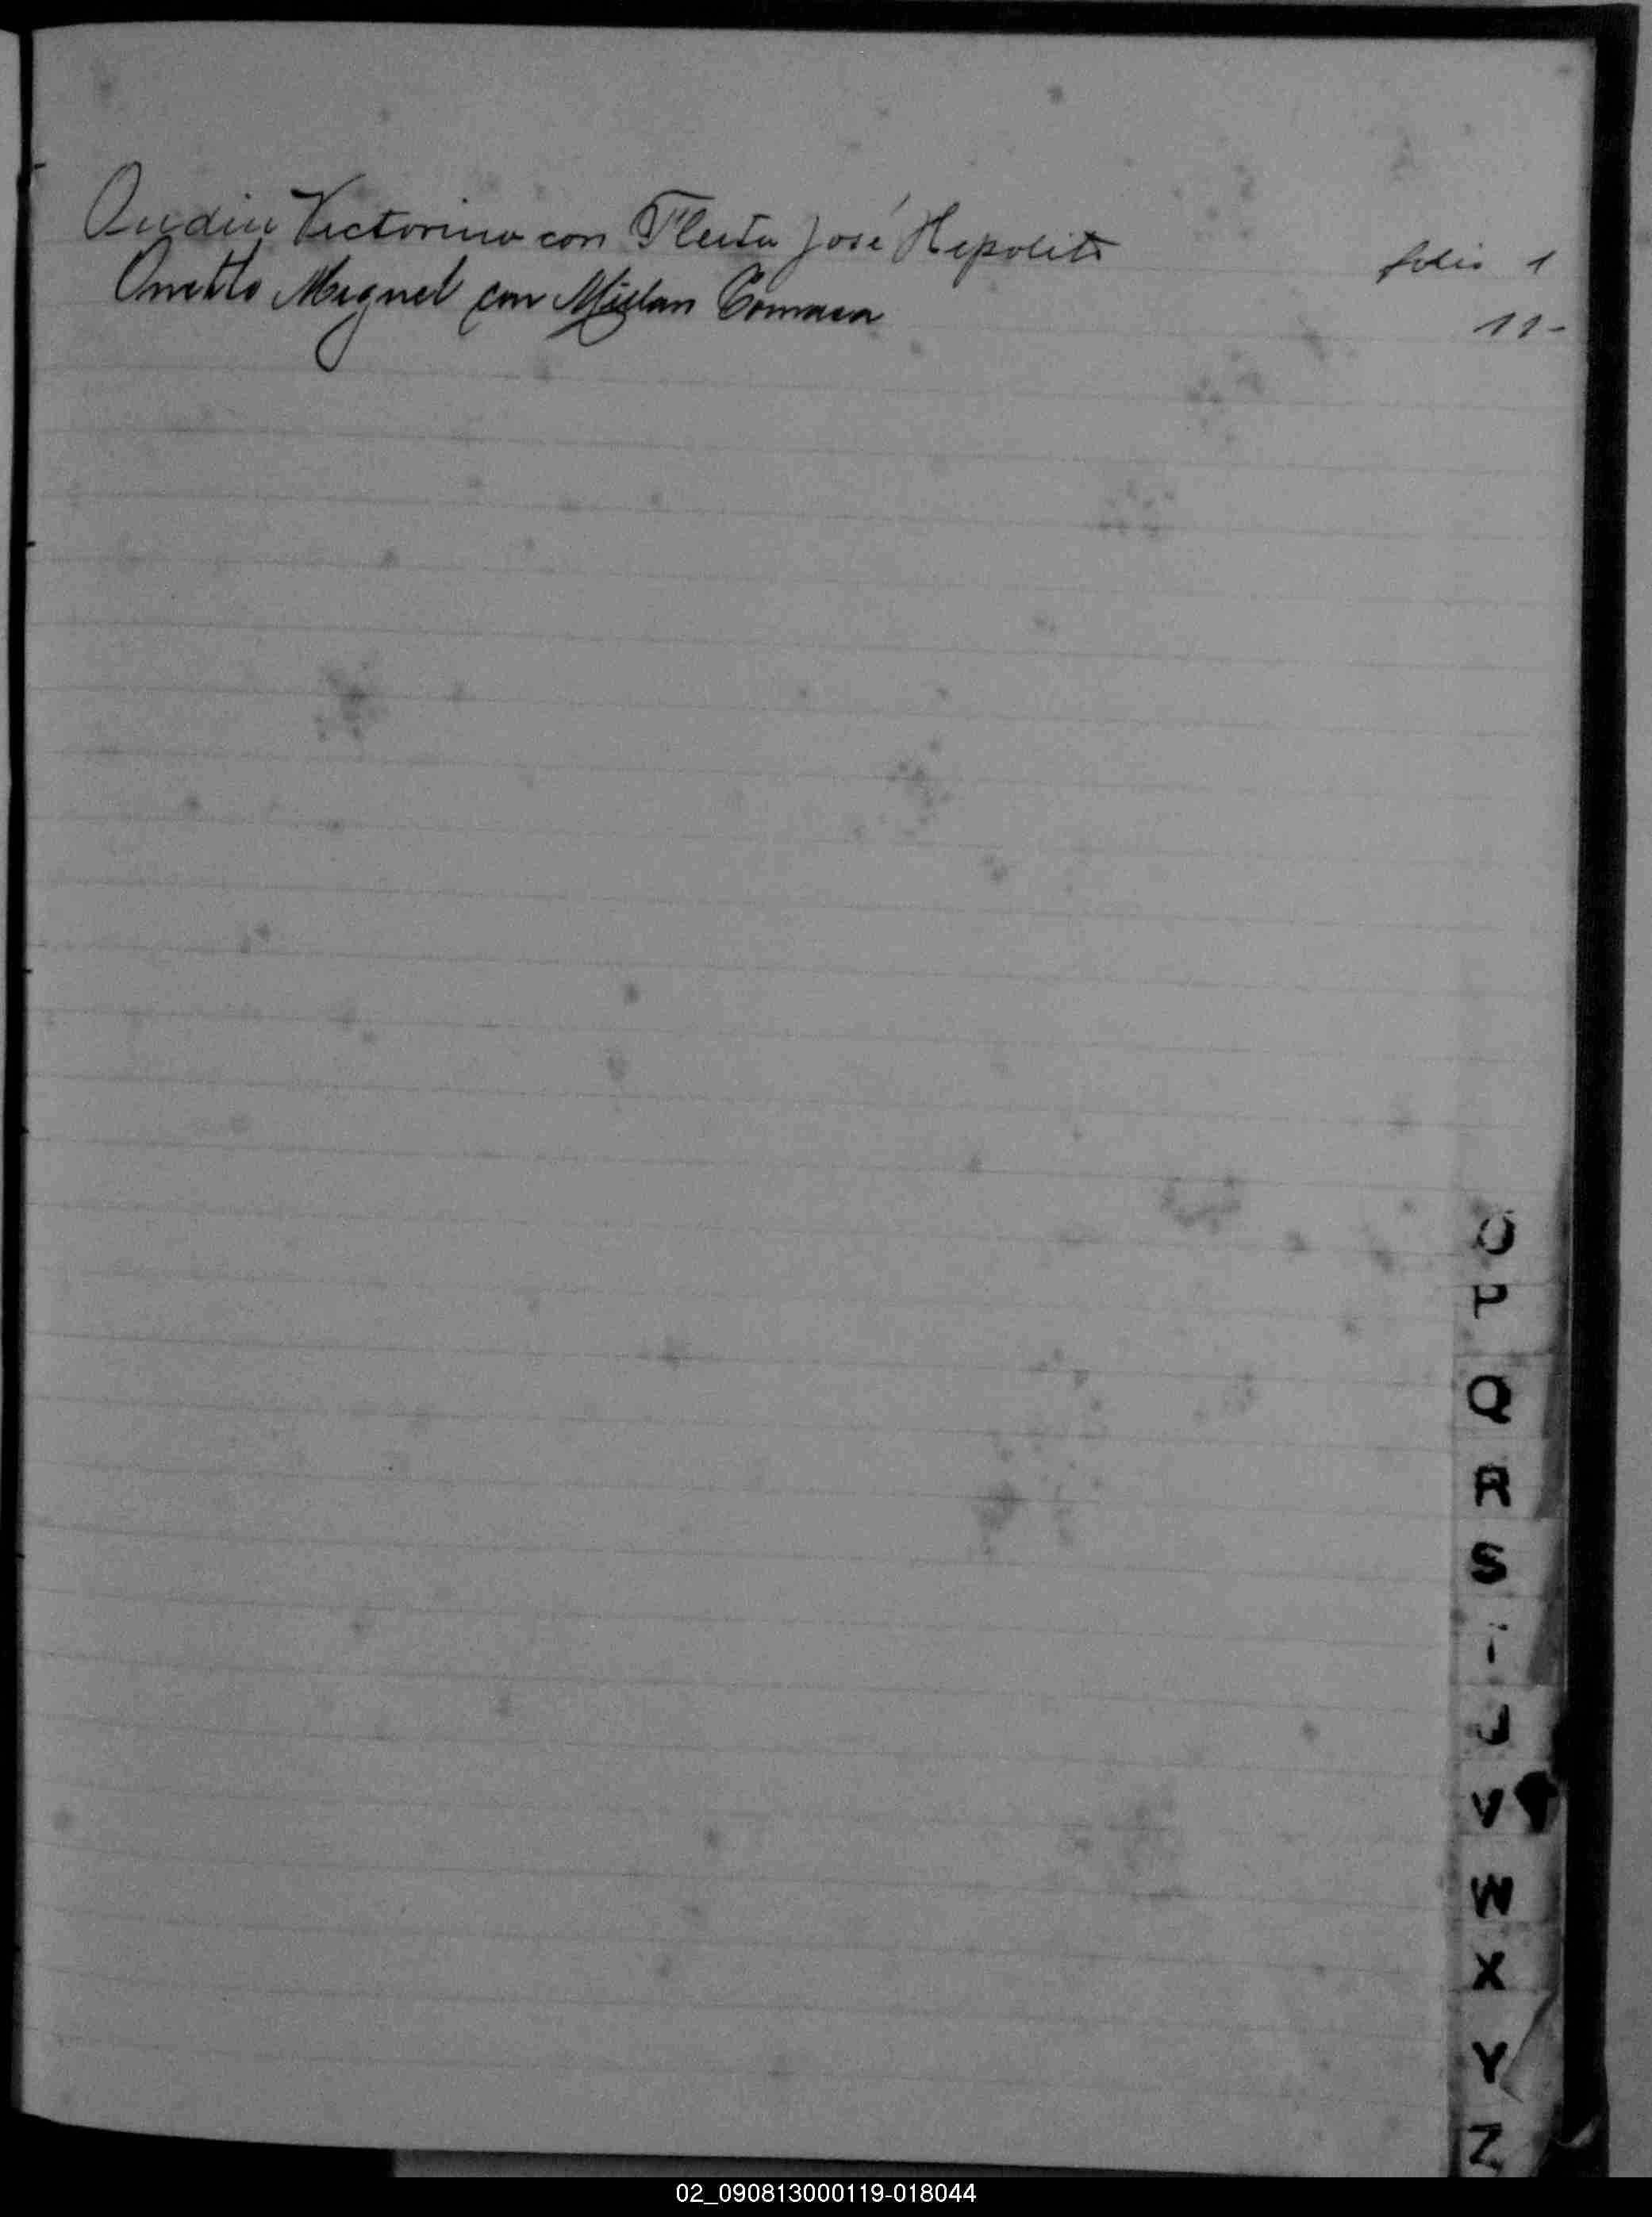 Victorino con José Hipolito folio 1
Onetto Miguel con Millan Tomasa 11-
O
P
Q
R
S
T
U
V
W
X
Y
Z
02_090813000119-018044